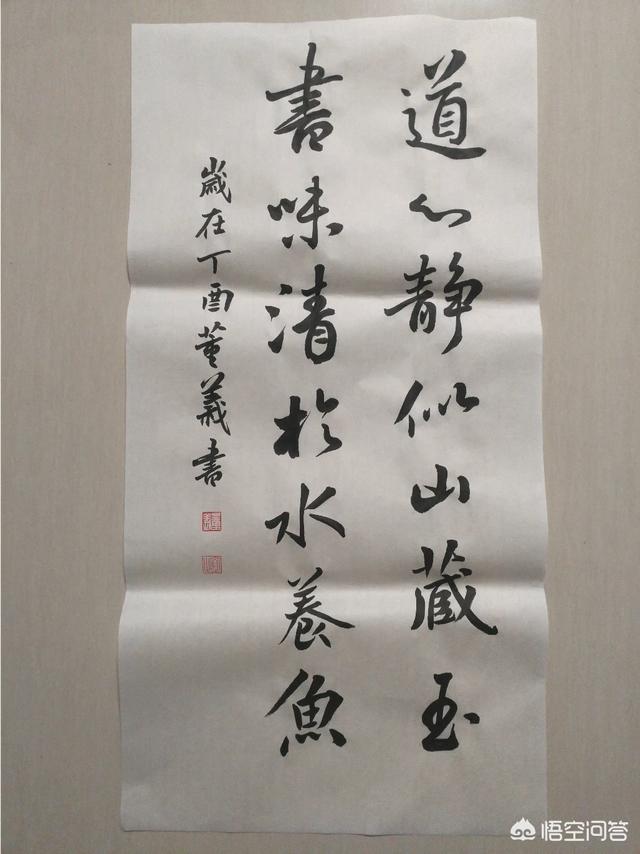 道心静似山藏玉
書味清於水養魚
歲在丁酉董義書
悟空问答